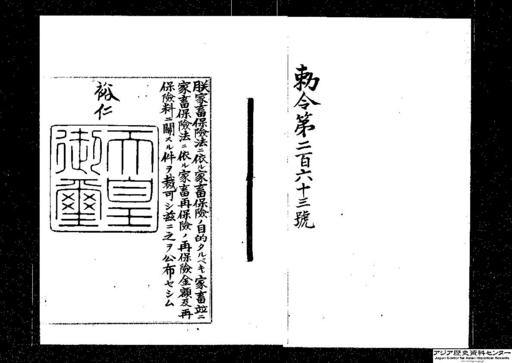 勅令第二百六十三號
朕家畜保險法ニ依ル家畜保險ノ目的タルベキ家畜竝ニ
家畜保險法ニ依ル家畜再保險ノ再保險金額及再
保險料ニ關スル件ヲ裁可シ茲ニ之ヲ公布セシム
裕仁
天皇
御璽
アジア歴史資料センター
Japan Center for Asian Historical Records